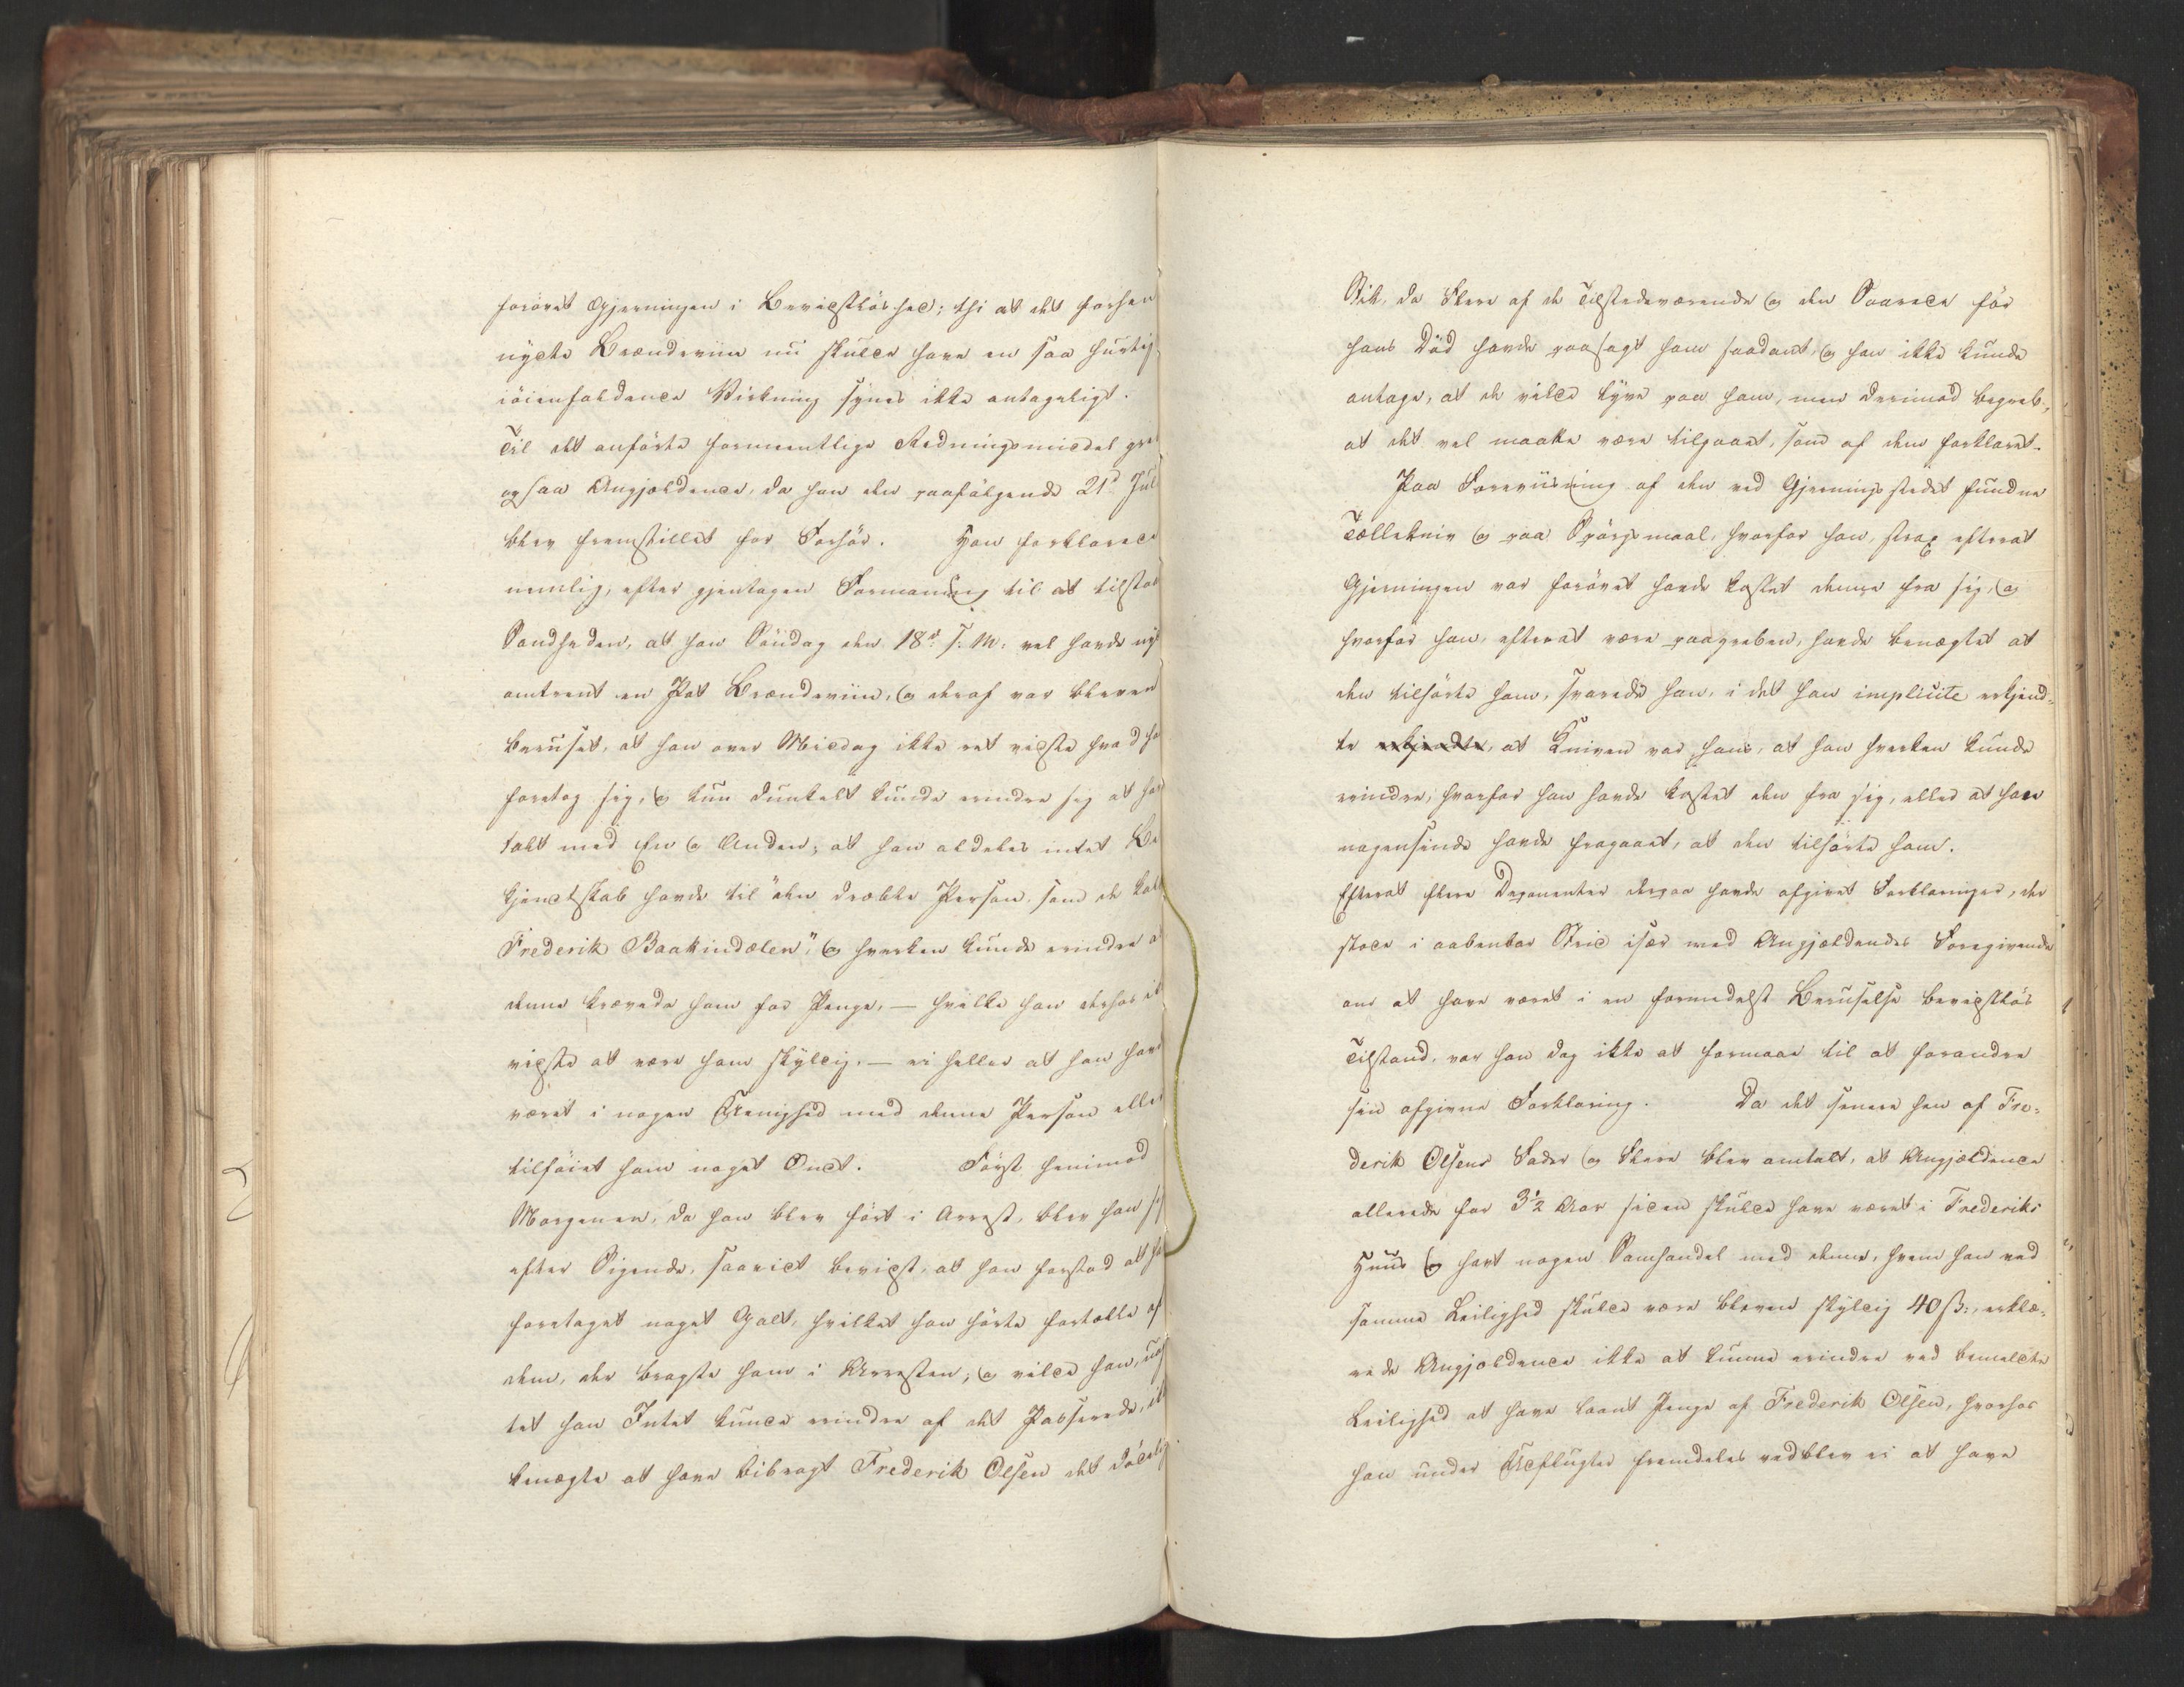 forøvet Gjerningen i Bevidstløshed; thi at det forhen
nydte Brændeviin nu skulde have en saa hurtig
iøienfaldende Virkning synes ikke antageligt.
Til det anførte formeentlige Redningsmiddel gre
ogsaa Angjældende, da han den paafølgende 21d Jul
blev fremstillet for Forhør. Han forklarede
nemlig, efter gjentagen Formaning til at tilstaae
Sandheden, at han Søndag den 18d s: M: vel havde nyd
omtrent en Pot Brændeviin, og deraf var bleven
beruset, at han over Middag ikke ret vidste hvad ha
foretog sig, og kun dunkelt kunde erindre sig at hav
talt med En og Anden; at han aldeles intet Be
kjendtskab havde til "den dræbte Person, som de kald
Frederik Baakindælen", og hverken kunde erindre a
denne krævede ham for Penge, — hvilke han derhos ik
vidste at være ham skyldig, — ei heller at han havd
været i nogen Uenighed med denne Person eller
tilføiet ham noget Ondt. Først henimod
Morgenen, da han blev ført i Arrest, blev han si
efter Sigende, saavidt bevidst, at han forstod at ha
foretaget noget Galt, hvilket han hørte fortælle af
dem, der bragte ham i Arresten; og vilde han, uag
tet han Intet kunde erindre af det Passerede, ik
benægte at have bibragt Frederik Olsen det dødelig
Stik, da Flere af de Tilstedeværende og den Saarede før
hans Død havde paasagt ham saadant, og han ikke kunde
antage, at de vilde lyve paa ham, men derimod begreb,
at det vel maatte være tilgaaet, som af dem forklaret.
Paa Foreviisning af den ved Gjerningsstedet fundne
Tællekniv og paa Spørgsmaal, hvorfor han, strax efterat
Gjerningen var forøvet havde kastet denne fra sig, og
hvorfor han, efterat være paagreben, havde benægtet at
den tilhørte ham, svarede han, i det han implicite erkjend-
te erkjendte, at Kniven var hans, at han hverken kunde
erindre, hvorfor han havde kastet den fra sig, eller at han
nogensinde havde fragaaet, at den tilhørte ham.
Efterat flere Deponenter derpaa havde afgivet Forklaringer, der
stode i aabenbar Strid især med Angjældendes Foregivende
om at have været i en formedelst Beruselse bevidstløs
Tilstand, var han dog ikke at formaae til at forandre
sin afgivne Forklaring. Da det senere hen af Fre-
derik Olsens Fader og Flere blev omtalt, at Angjældende
allerede for 3½ Aar siden skulde have været i Frederiks
Huus og havt nogen Samhandel med denne, hvem han ved
samme Leilighed skulde være bleven skyldig 40 ß:, erklæ-
rede Angjældende ikke at kunne erindre ved bemeldte
Leilighed at have laant Penge af Frederik Olsen, hvorhos
han under Udflugter fremdeles vedblev ei at have